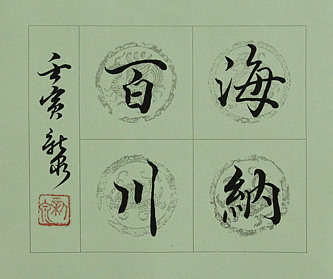 海納
百川
壬寅